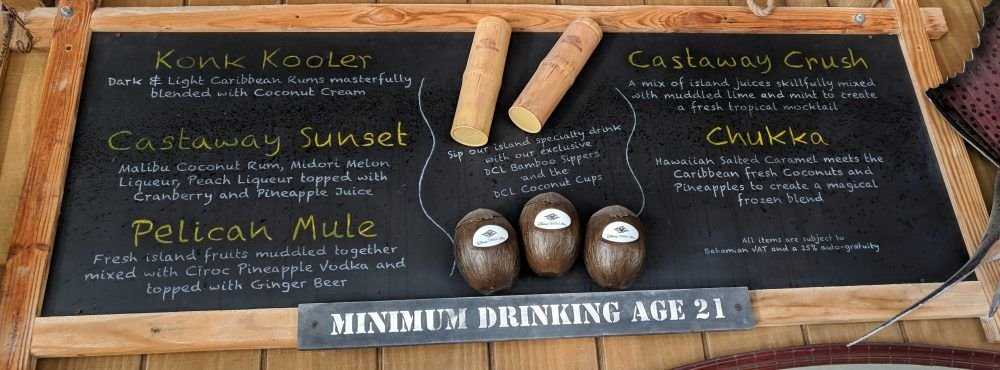 Konk Kooler
Dark & Light Caribbean Rums masterfully
blended with Coconut Cream
Castaway Sunset
Malibu Coconut Rum, Midori Melon
Liqueur, Peach Liqueur topped with
Cranberry and Pineapple Juice
Pelican Mule
Fresh island fruits muddled together
mixed with Ciroc Pineapple Vodka and
topped with Ginger Beer
Sip our island specialty drink
with our exclusive
DCL Bamboo Sippers
and the
DCL Coconut Cups
Castaway Crush
A mix of island juices skillfully mixed
with muddled lime and mint to create
a fresh tropical mocktail
Chukka
Hawaiian Salted Caramel meets the
Caribbean fresh Coconuts and
Pineapples to create a magical
frozen blend
All items are subject to
Bahamian VAT and a 15% auto-gratuity
MINIMUM DRINKING AGE 21